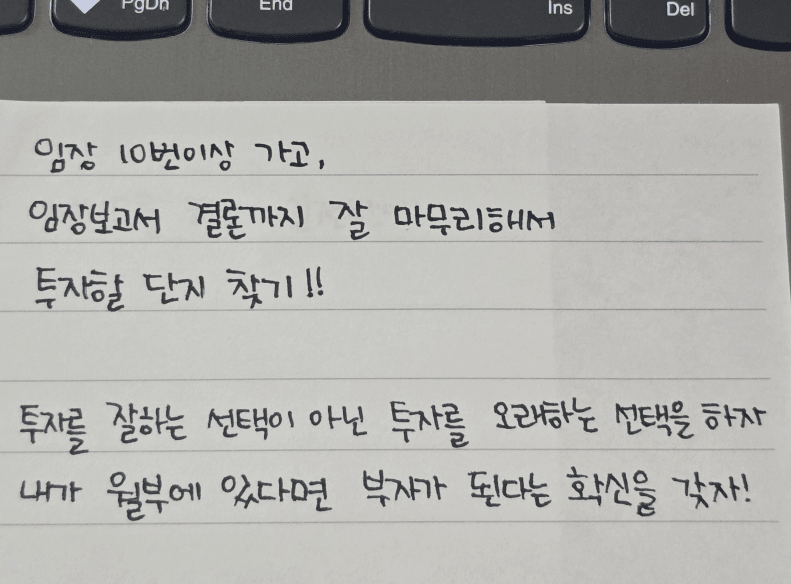 PgDn End Ins Del
임장 10번이상 가고,
임장보고서 결론까지 잘 마무리해서
투자할 단지 찾기!!
투자를 잘하는 선택이 아닌 투자를 오래하는 선택을 하자
내가 월부에 있다면 부자가 된다는 확신을 갖자!